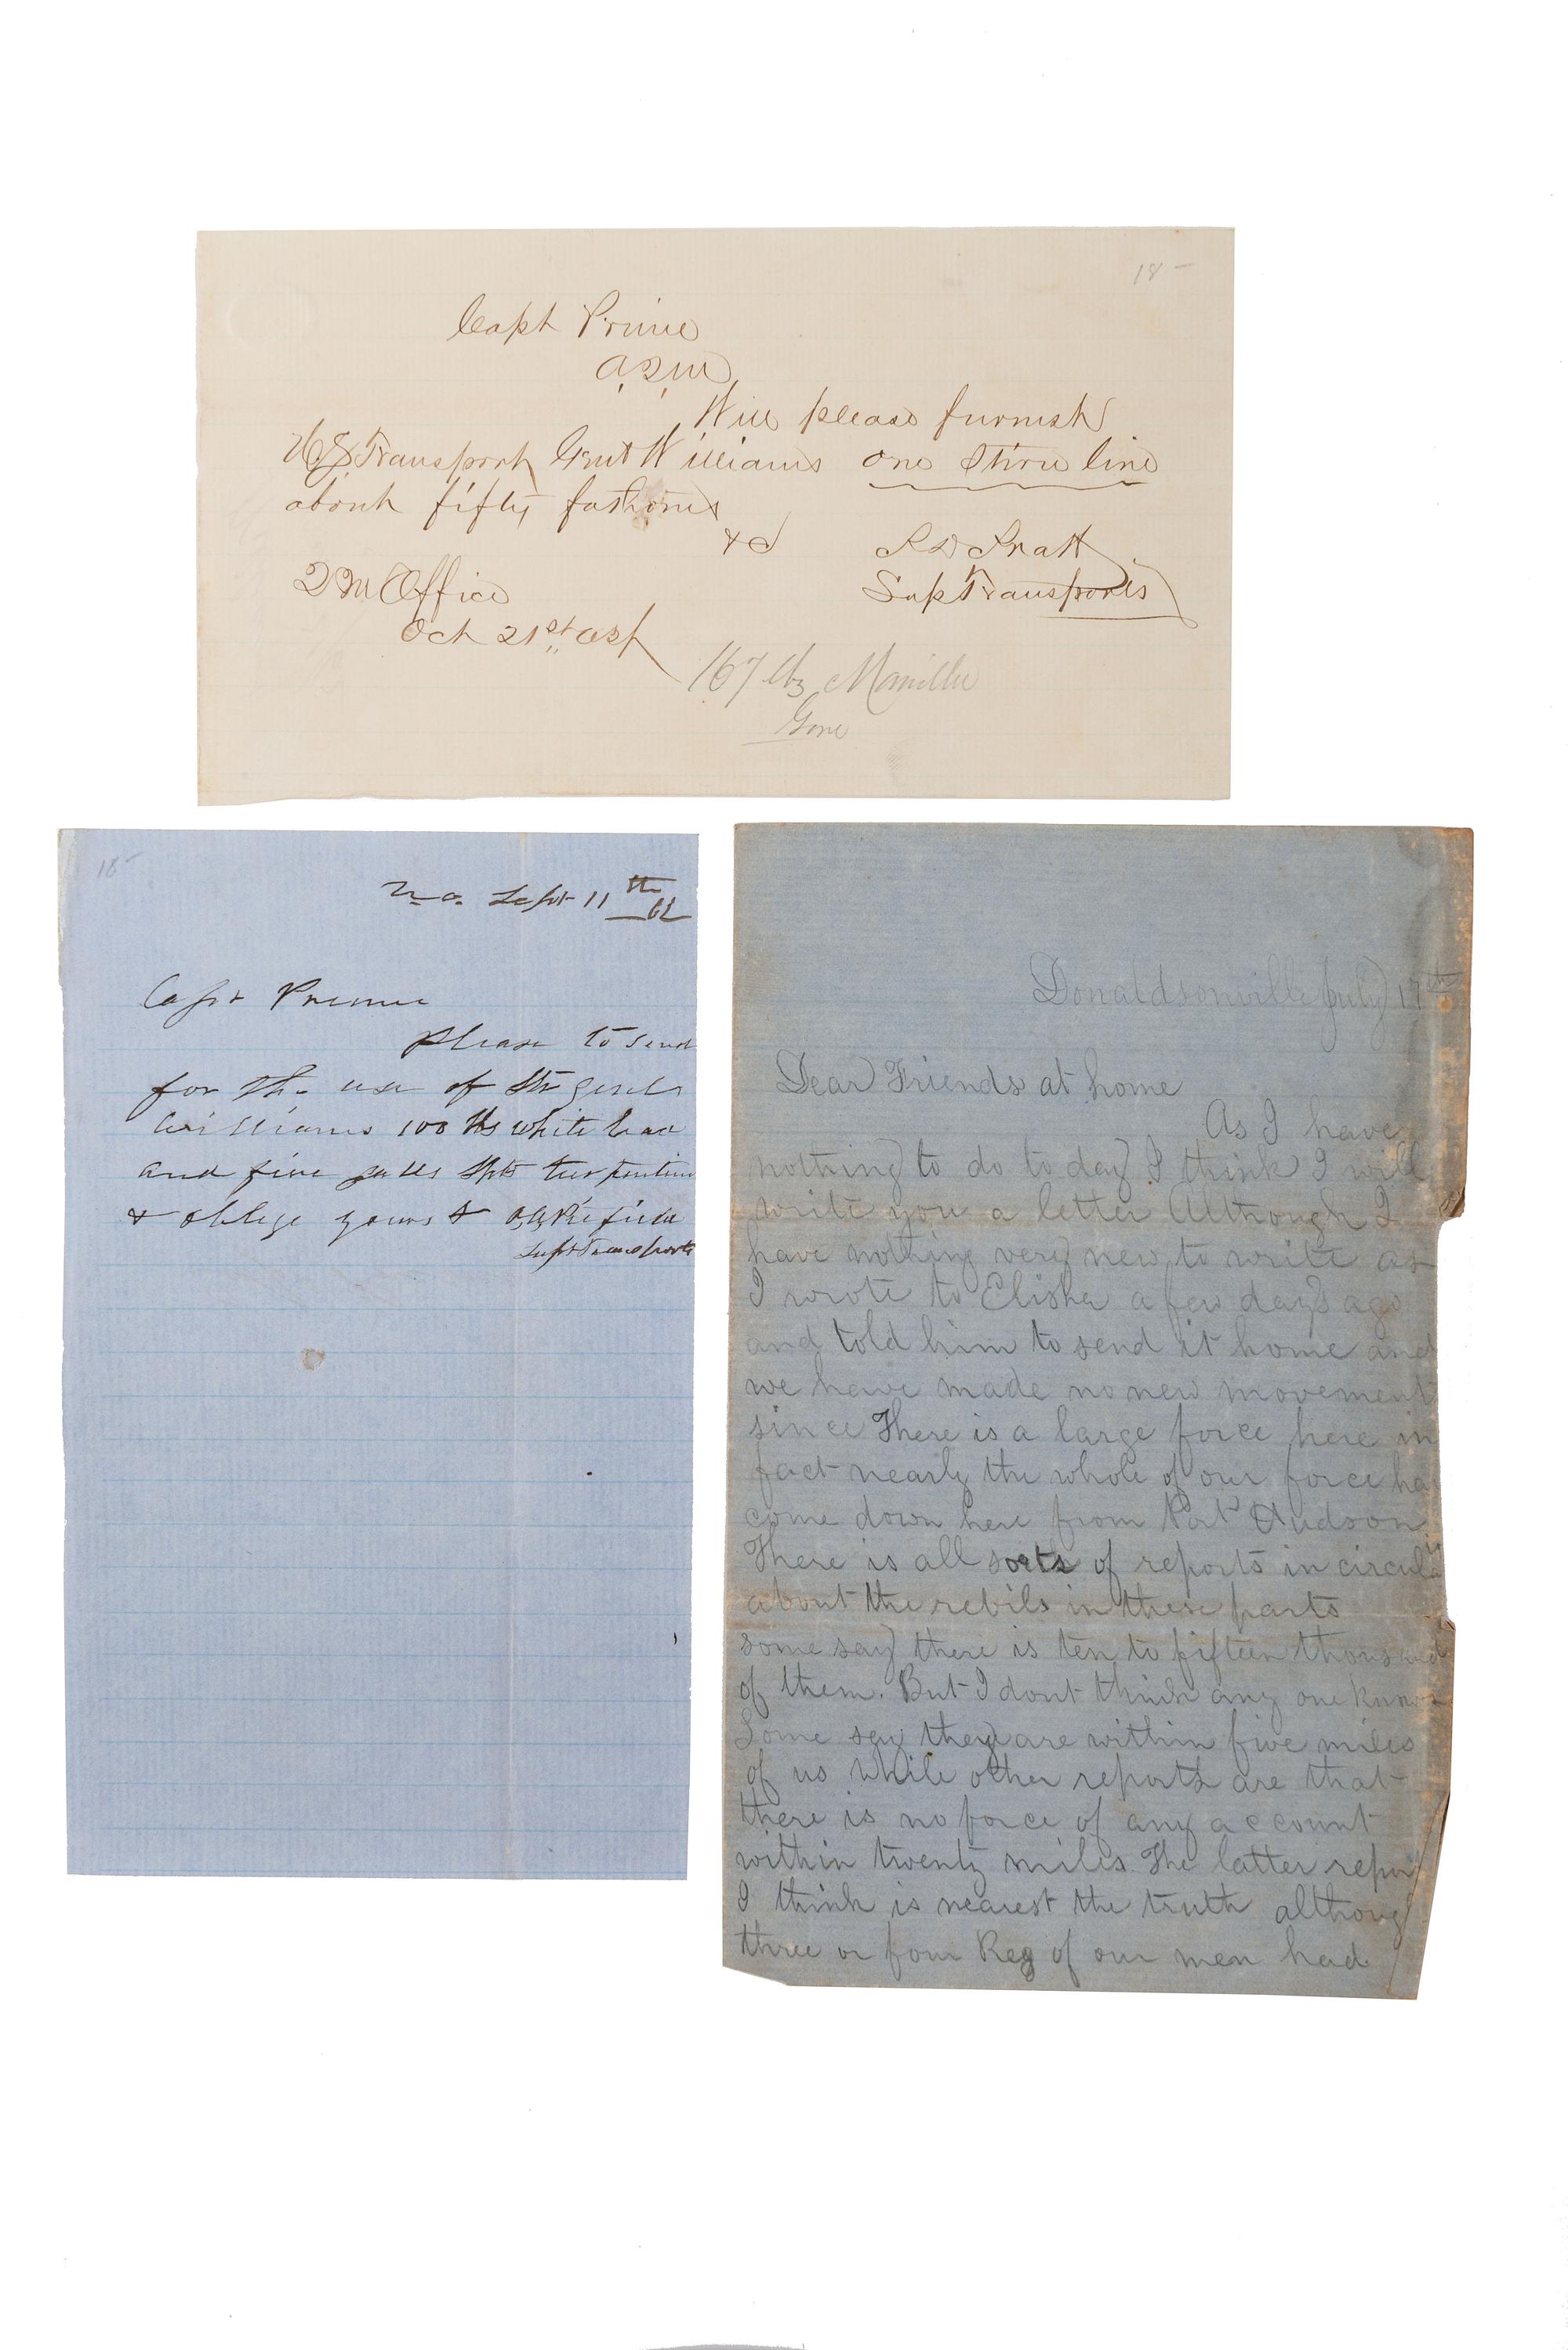 18-
Capt Prime
A.Q.M.
Will please furnish
US Transport Genl Williams one Stern line
about fifty fathoms
&c
R D Pratt
Supt Transports
QM Office
Oct 21st
167 lbs Manilla
18-
N.O. Sept 11th 62
Capt Prime
Please to send
for the use of Str Genl
Williams 100 lbs white lead
and five galls Spts turpentine
& oblige yours &
Supt Transports
Donaldsonville July 17th
Dear Friends at home
As I have
nothing to do to day I think I will
write you a letter Although I
have nothing very new to write as
I wrote to Elisha a few days ago
and told him to send it home and
we have made no new movement
since There is a large force here in
fact nearly the whole of our force ha
come down here from Port Hudson
There is all sorts of reports in circula
about the rebils in these parts
some say there is ten to fifteen thousand
of them. But I dont think any one knows
Some say they are within five miles
of us while other reports are that
there is no force of any account
within twenty miles The latter repor
I think is nearest the truth althoug
three or four Reg of our men had